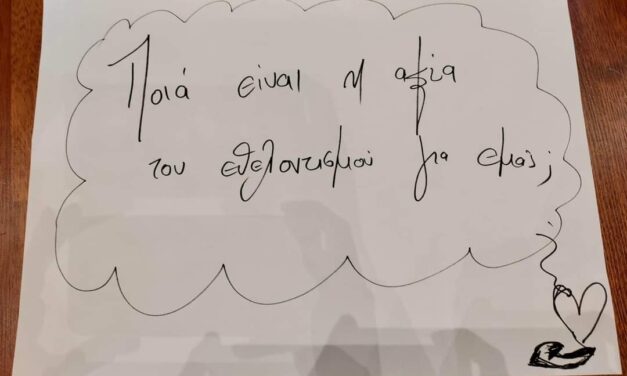 Ποιά είναι η αξία
του εθελοντισμού για εμάς;